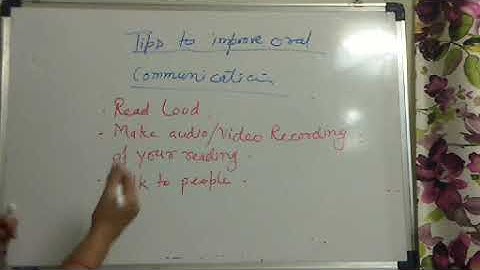 Tips to improve oral
Communication
. Read Loud.
. Make audio/Video Recording
of your reading.
. to people.